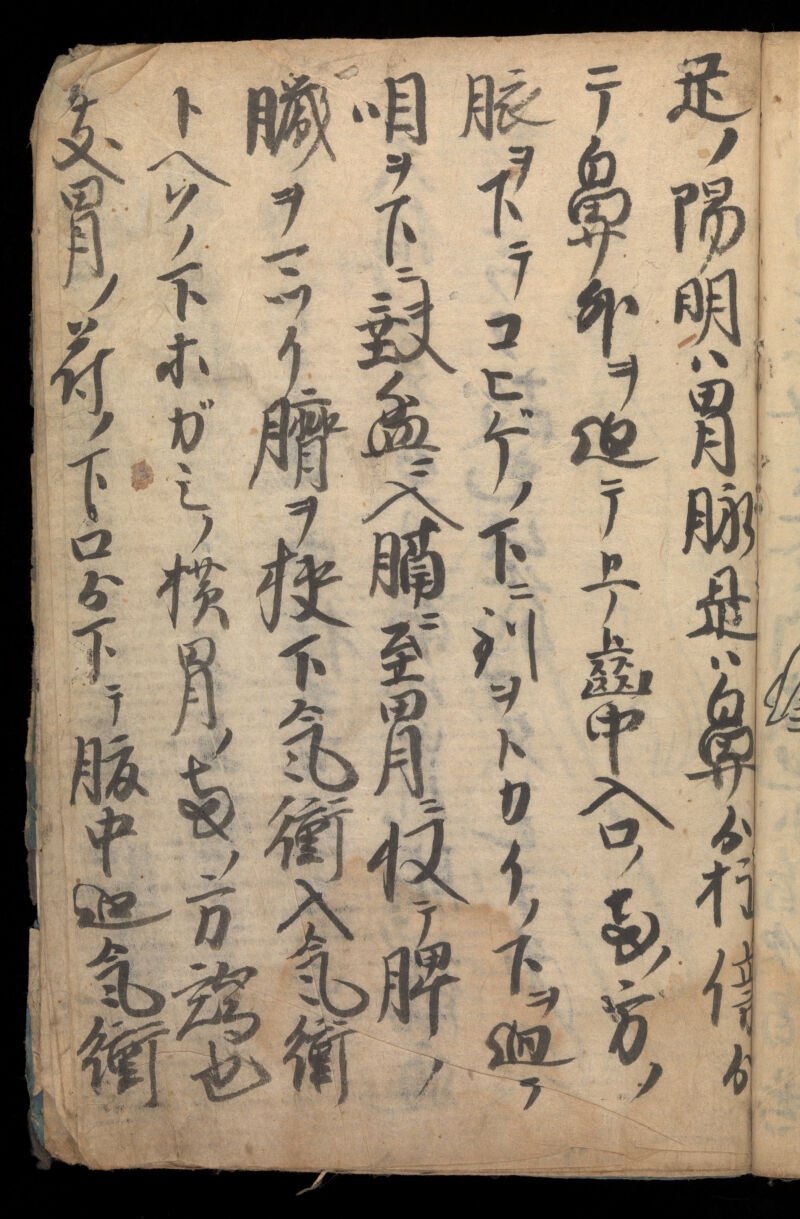 足ノ陽明ハ胃脉是ハ鼻ゟ柱傍ゟ
テ鼻外ヲ廻テ上ノ齒中入口ノ両ノ方ノ
脉ヲ下テコヒゲノ下ニ到ヲトカイノ下ヲ廻テ
咽ヲ下ニ缺盆ニ入膈ニ至胃ニ收テ脾ノ
臓ヲマツイ臍ヲ挾下氣衝入氣衝
トヘソノ下ホガミノ横胃ノ両ノ方
也
支胃ノ府ノ下口ゟ下テ腹中廻氣衝